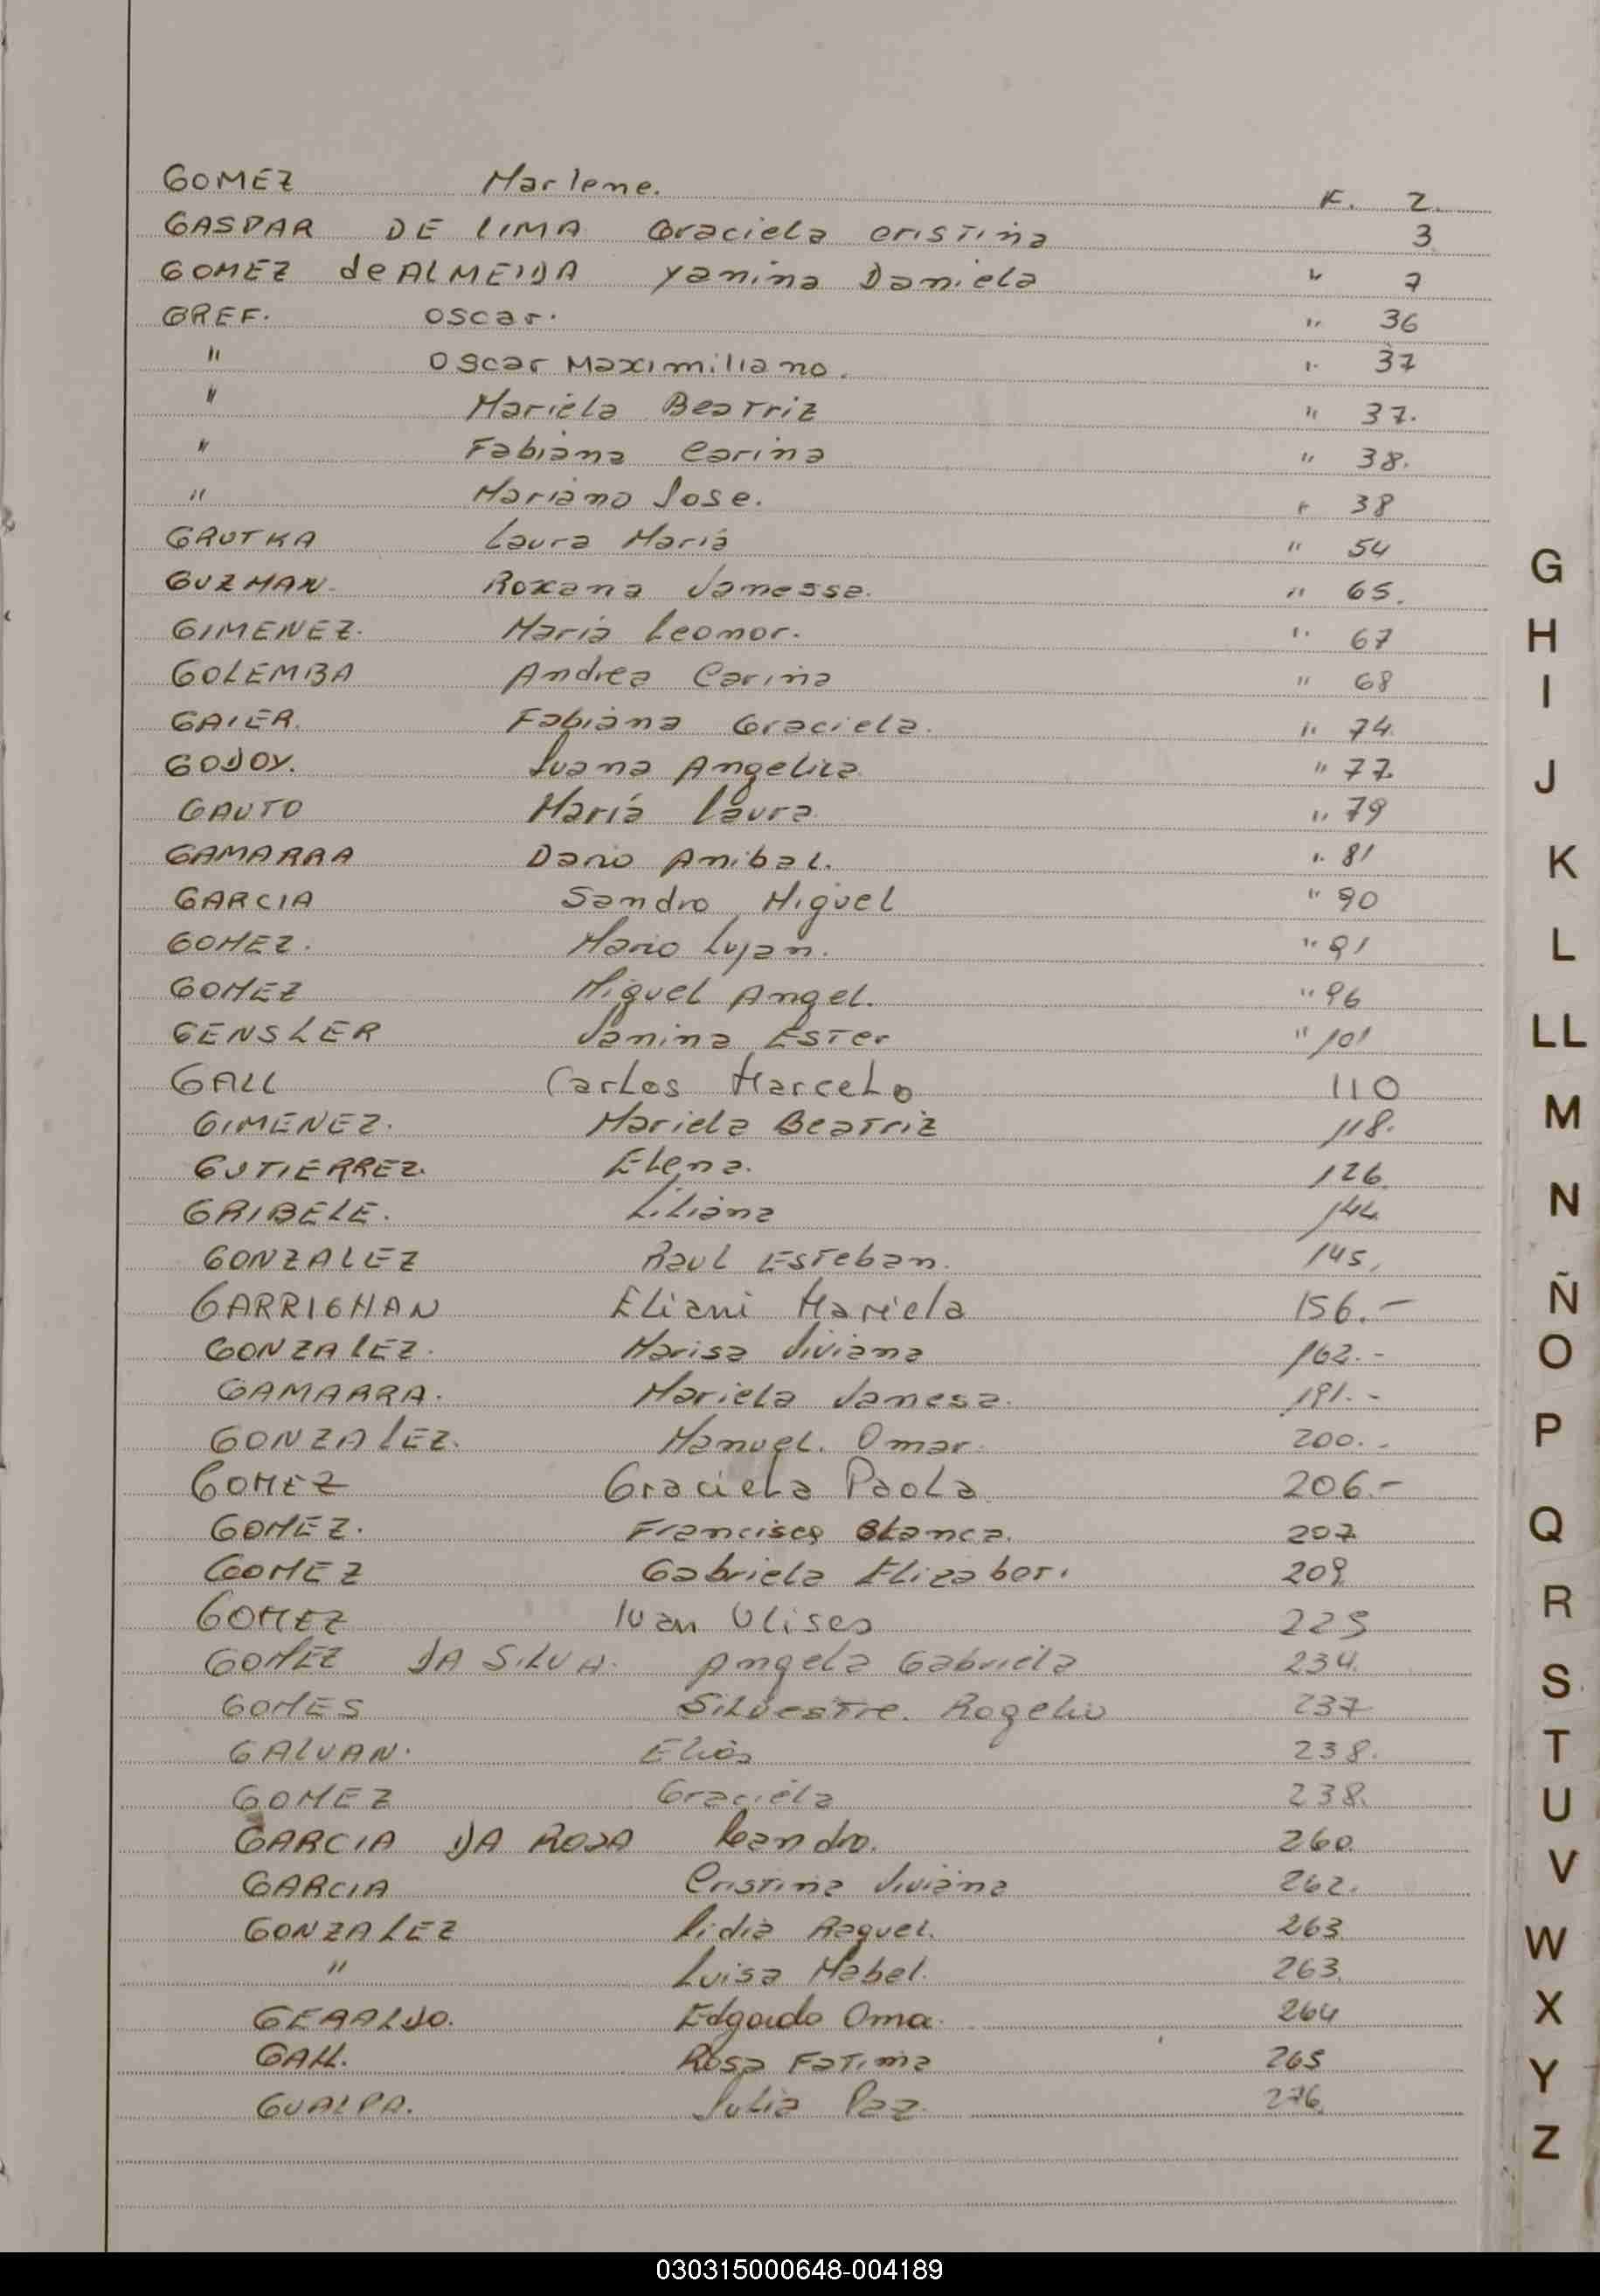 GOMEZ Marlene. F. 2.
GASPAR DE LIMA Graciela cristina 3
GOMEZ de ALMEIDA Yanina Daniela " 7
GREF. Oscar. " 36
" Oscar Maximiliano. " 37
" Mariela Beatriz " 37.
" Fabiana Carina " 38.
" Mariano Jose. " 38
GRUTKA Laura Maria " 54
GUZMAN. Roxana Vanessa. " 65.
GIMENEZ. Maria Leonor. " 67
GOLEMBA Andrea Carina " 68
GAIER. Fabiana Graciela. " 74.
GODOY. Juana Angelica " 77.
GAUTO Maria Laura. " 79
GAMARRA Dario Anibal. " 81
GARCIA Sandro Miguel " 90
GOMEZ. Mario Lujan. " 91
GOMEZ Miguel Angel. " 96
GENSLER Vanina Ester " 101
GALL Carlos Marcelo 110
GIMENEZ. Mariela Beatriz 118.
GUTIERREZ. Elena. 126.
GRIBELE. Liliana 144.
GONZALEZ Raul Esteban. 145.
GARRIGHAN Eliani Mariela 156.-
GONZALEZ. Marisa Viviana 162.-
GAMARRA. Mariela Vanesa. 191.-
GONZALEZ. Manuel. Omar. 200.-
GOMEZ Graciela Paola 206.-
GOMEZ. Francisca Blanca. 207
GOMEZ Gabriela Elizabet. 209.
GOMEZ Ivan Ulises 225
GOMEZ DA SILVA. Angela Gabriela 234.
GOMES Silvestre. Rogelio 237
GALVAN. Elias 238.
GOMEZ Graciela 238.
GARCIA DA ROSA Leandro. 260.
GARCIA Cristina Viviana 262.
GONZALEZ Lidia Raquel. 263.
" Luisa Mabel. 263.
GERALDO. Edgardo Omar. 264
GALL. Rosa Fatima 265
GUALPA. Julia Paz. 276.
G
H
I
J
K
L
LL
M
N
Ñ
O
P
Q
R
S
T
U
V
W
X
Y
Z
030315000648-004189